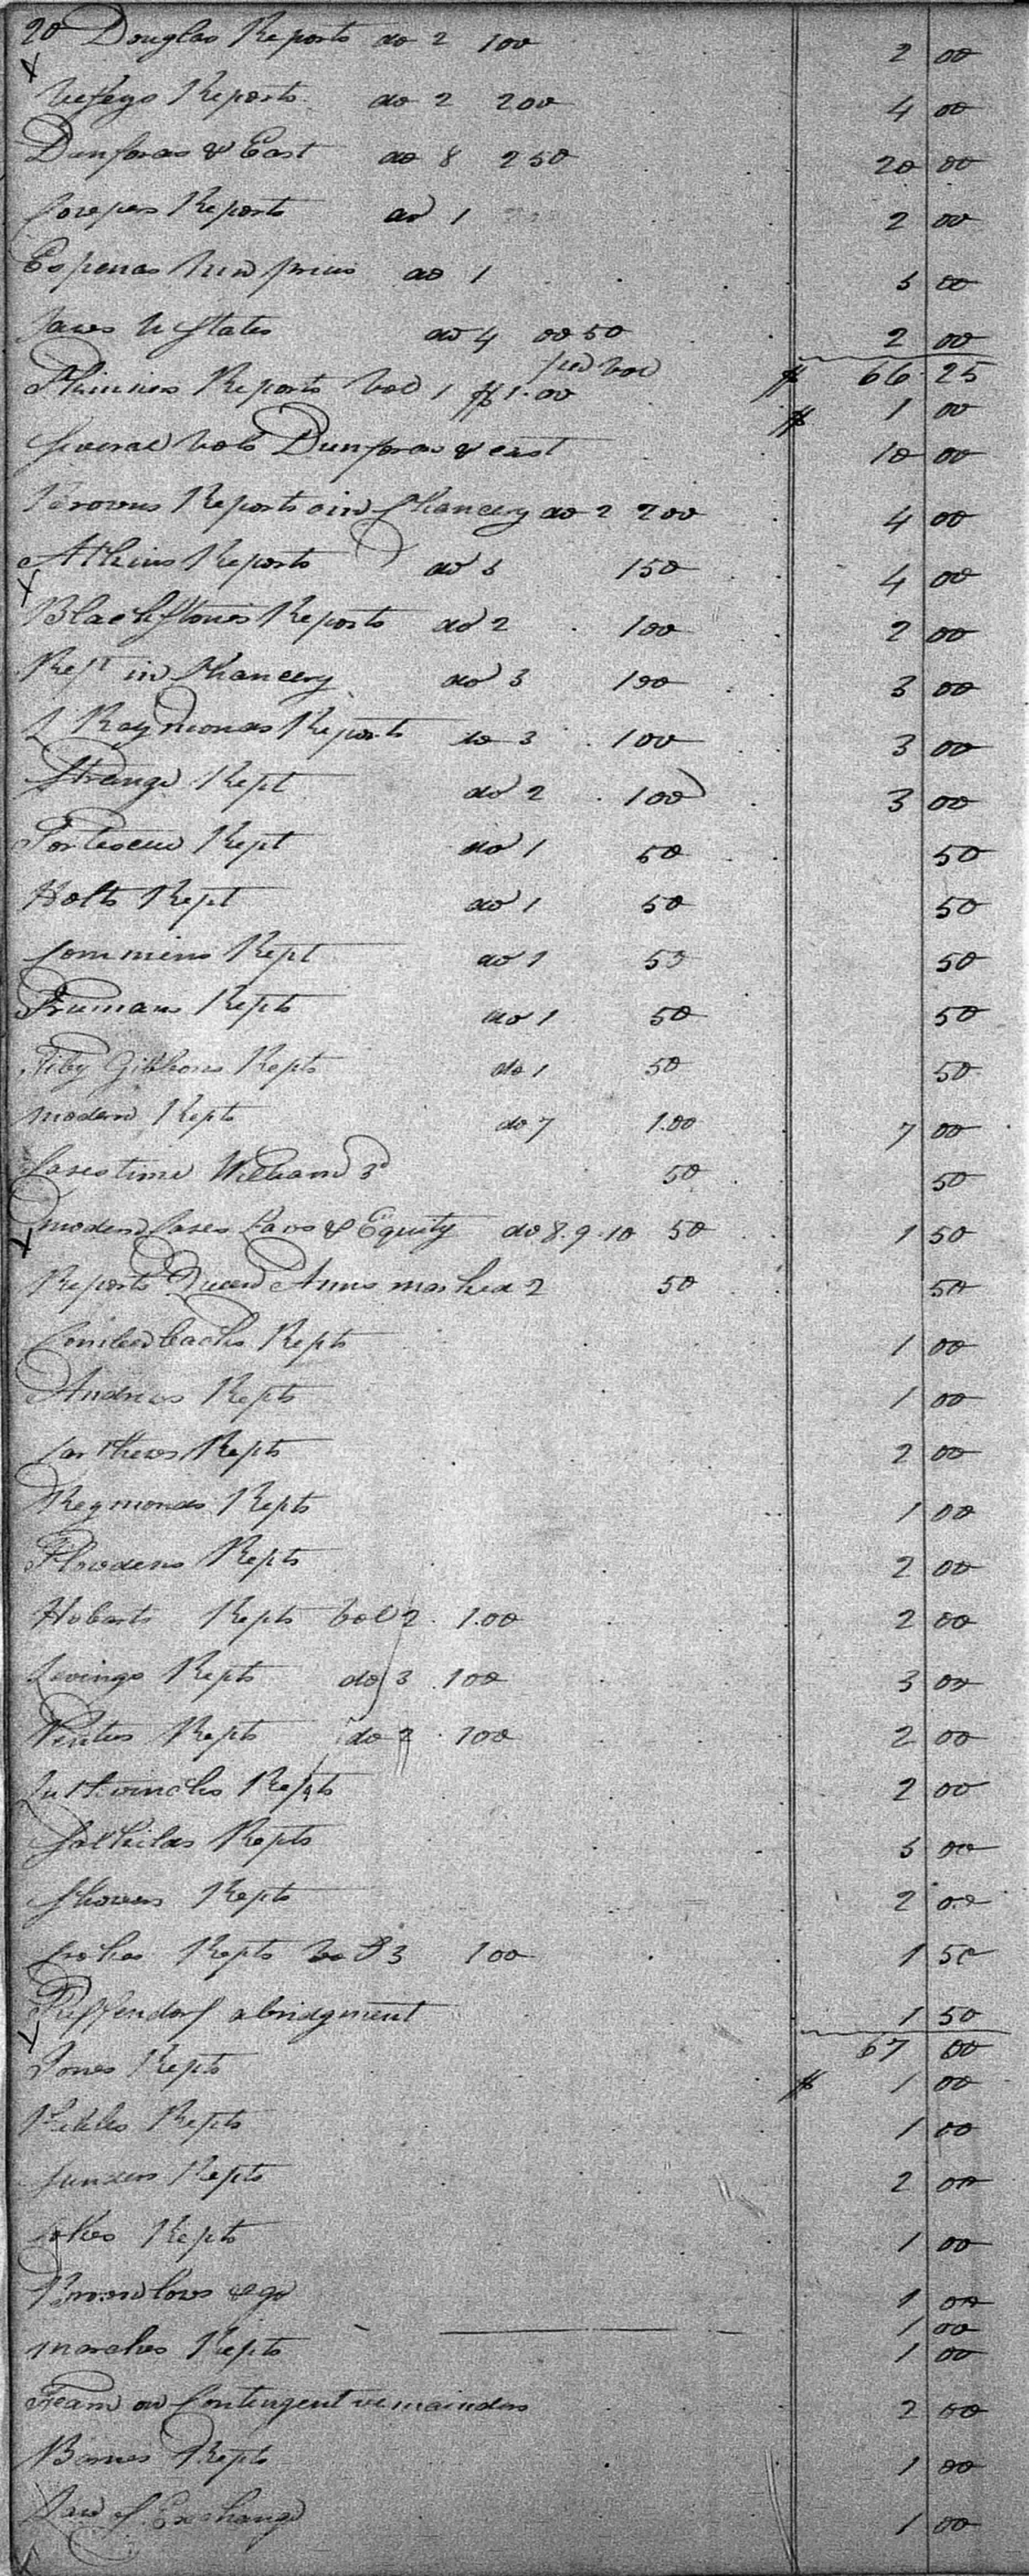 20 Douglas Reports do 2 100 2 00
Reports do 2 200 4 00
Dunfords & East do 8 250 20 00
Reports do 1 2 00
Espenas Nisi prius do 1 5 00
Laws U States do 4 00 50 2 00
per vol $ 66 25
Skinners Reports Vol 1 $1.00 $ 1 00
several vols Dunford & east 10 00
Browns Reports in Chancery do 2 200 4 00
Atkins Reports do 3 150 4 00
Blackstones Reports do 2 100 2 00
Rept in Chancery do 3 100 3 00
L Raymonds Reports do 3 100 3 00
Strange Rept do 2 100 3 00
Fortescue Rept do 1 50 50
Holts Rept do 1 50 50
Commins Rept do 1 50 50
Freemans Repts do 1 50 50
Gibbons Repts do 1 50 50
modern Repts do 7 1.00 7 00
Cases time William 3d 50 50
modern Cases Laws & Equity do 8.9.10 50 1 50
Reports Queen Anns marked 2 50 50
Comberbachs Repts 1 00
Andrews Repts 1 00
Carthews Repts 2 00
Reymonds Repts 1 00
Plowdens Repts 2 00
Hobarts Repts vol 2 1.00 2 00
Levings Repts do 3 100 3 00
Ventris Repts do 2 100 2 00
Lutwinchs Repts 2 00
Salkilds Repts 5 00
Showers Repts 2 00
Crokes Repts vol 3 100 1 50
Puffendorf abridgment 1 50
67 00
Jones Repts $ 1 00
Repts 1 00
Sunders Repts 2 00
Repts 1 00
Brownlows & go 1 00
1 00
marches Repts 1 00
Fearn on Contingent remainders 2 00
Barnes Repts 1 00
Law of Exchange 1 00